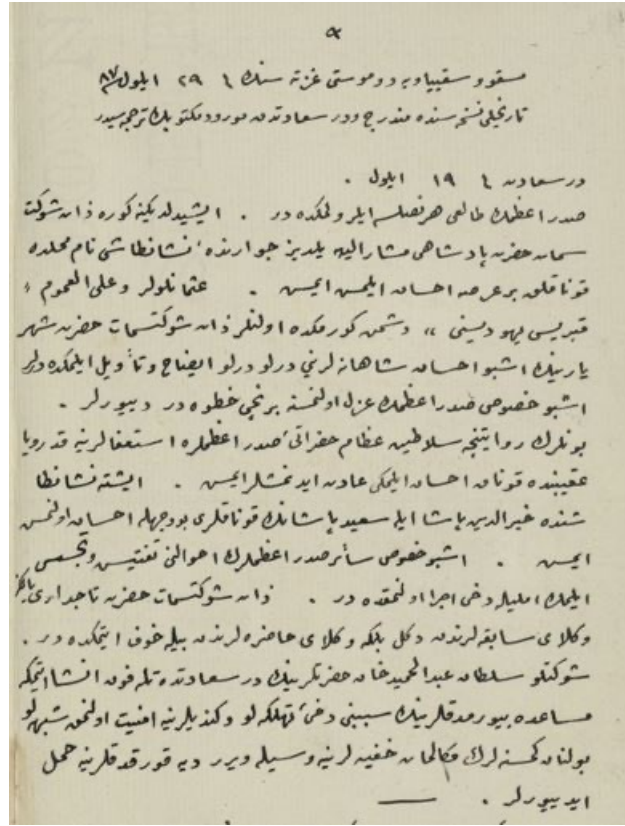 ٩
مسقوو سقییا ویدوموستی غزته سنك ٢٩ ایلول ٨٧
تاریخلی نسخه سنده مندرج ودر سعادتدن مورود مكتوبك ترجمه سیدر
در سعادت ١٩ ایلول .
صدر اعظمك طالعی هر نصلسه ایلرولمكده در . ایشیدلدیكنه كوره ذات شوكت
سمات حضرت پادشاهی مشار الیهه یلدیز جوارنده نشانطاشی نام محلده
قوناقلق بر عرصه احسان ایلمش ایمش . عثمانلولر وعلی العموم
قبریس یهودیسنی دشمن كورمكده اولنلر ذات شوكتسمات حضرت شهر
یارینك اشبو احسان شاهانه لرینی درلو درلو ایضاح وتأویل ایلمكده درلر
اشبو خصوص صدر اعظمك عزل اولنمسنه برنجی خطوه در دییورلر .
بونلرك روایتنجه سلاطین عظام حضراتی صدر اعظملره استعفالرینه قدر ویا
عقیبنده قوناق احسان ایلمكی عادت ایدنمشلر ایمش . ایشته نشانطا
شنده خیرالدین پاشا ایله سعید پاشانك قوناقلری بو وجهله احسان اولنمش
ایمش . اشبو خصوص سائر صدر اعظملرك احوالنی تفتیش وتجسس
ایلمك املیله دخی اجرا اولنمقده در . ذات شوكتسمات حضرت تاجداری یالكز
وكلای سابقه لرندن دكل بلكه وكلای حاضره لرندن بیله خوف ایتمكده در .
شوكتلو سلطان عبدالحمید خان حضرتلرینك در سعادتده تله فون انشا ایتمكه
مساعده بیورمدقلرینك سببنی دخی تهلكه لو وكندیلرینه امنیت اولنمق شبهه لو
بولنان كمسنه لرك مكالمات خفیه لرینه وسیله ویرر دیه قورقدقلرینه حمل
ایدییورلر .